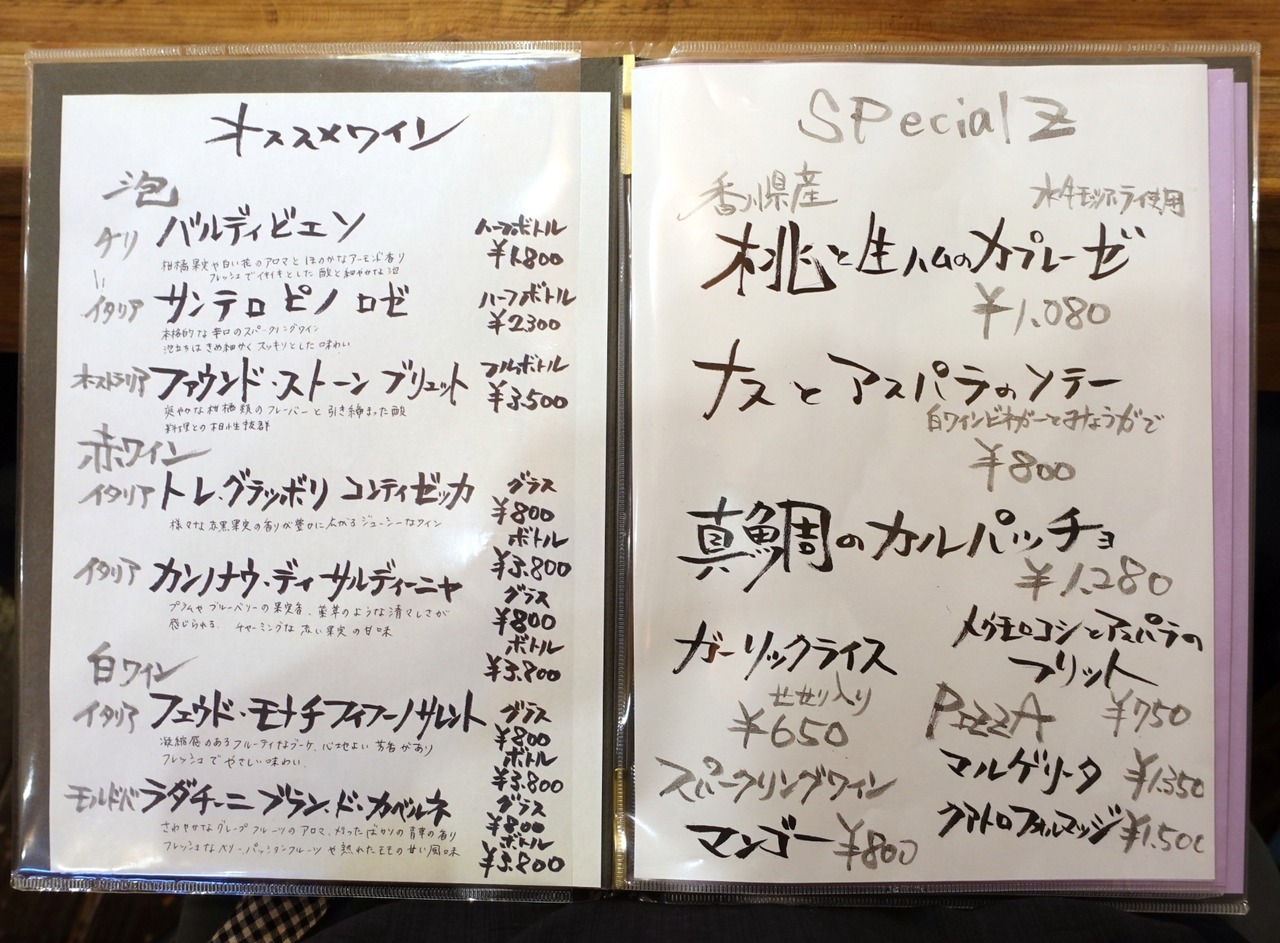 オススメワイン
泡
チリ バルディビエソ ハーフボトル
¥1,800
柑橘果実や白い花のアロマと ほのかなアーモンド香り
フレッシュでイキイキとした酸と細やかな泡
イタリア サンテロ ピノ ロゼ ハーフボトル
¥2300
本格的な辛口のスパークリングワイン
泡立ちはきめ細かく スッキリとした味わい
オーストラリア ファウンド・ストーン ブリュット フルボトル
¥3,500
爽やかな柑橘類のフレーバーと引き締まった酸
料理との相性抜群
赤ワイン
イタリア トレ・グラッポリ コンティゼッカ グラス
¥800
様々な赤黒果実の香りが豊かに広がるジューシーなワイン
ボトル
¥3.800
イタリア カンノナウ・ディ サルディーニャ グラス
¥800
プラムやブルーベリーの果実香、薬草のような清々しさが
感じられる、チャーミングな濃い果実の甘味
ボトル
¥3.800
白ワイン
イタリア フェウド・モナチ フィアーノサレント グラス
¥800
凝縮感のあるフルーティなブーケ、心地よい芳香があり
フレッシュでやさしい味わい
ボトル
¥3.800
モルドバ ラダチーニ ブラン・ド・カベルネ グラス
¥800
さわやかなグレープフルーツのアロマ、刈ったばかりの青草の香り
フレッシュなベリー、パッションフルーツや熟れたモモの甘い風味
ボトル
¥3.800
SPecial Z
香川県産 水牛モッツァレラ使用
桃と生ハムのカプレーゼ
¥1,080
ナスとアスパラのソテー
白ワインビネガーとみょうがで
¥800
真鯛のカルパッチョ
¥1,280
ガーリックライス
せせり入り
¥650
メケモロコシとアスパラの
フリット
¥750
PizzA
マルゲリータ ¥1.350
クアトロフォルマッジ ¥1.500
スパークリングワイン
マンゴー ¥800